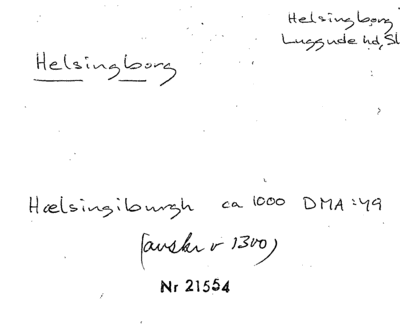 Helsingborg
Luggude hd, Sk
Helsingborg
Hælsingiburgh ca 1000 DMA:49
(avskr v 1300)
Nr 21554